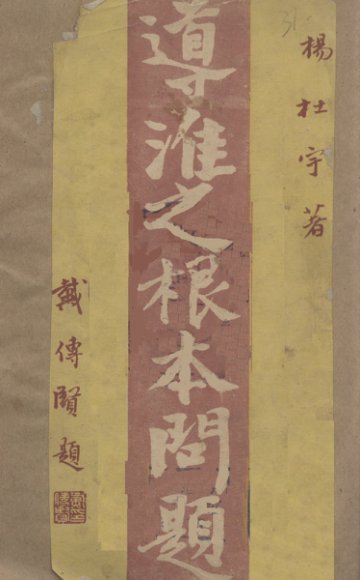 楊杜宇著
導淮之根本問題
戴傳賢題